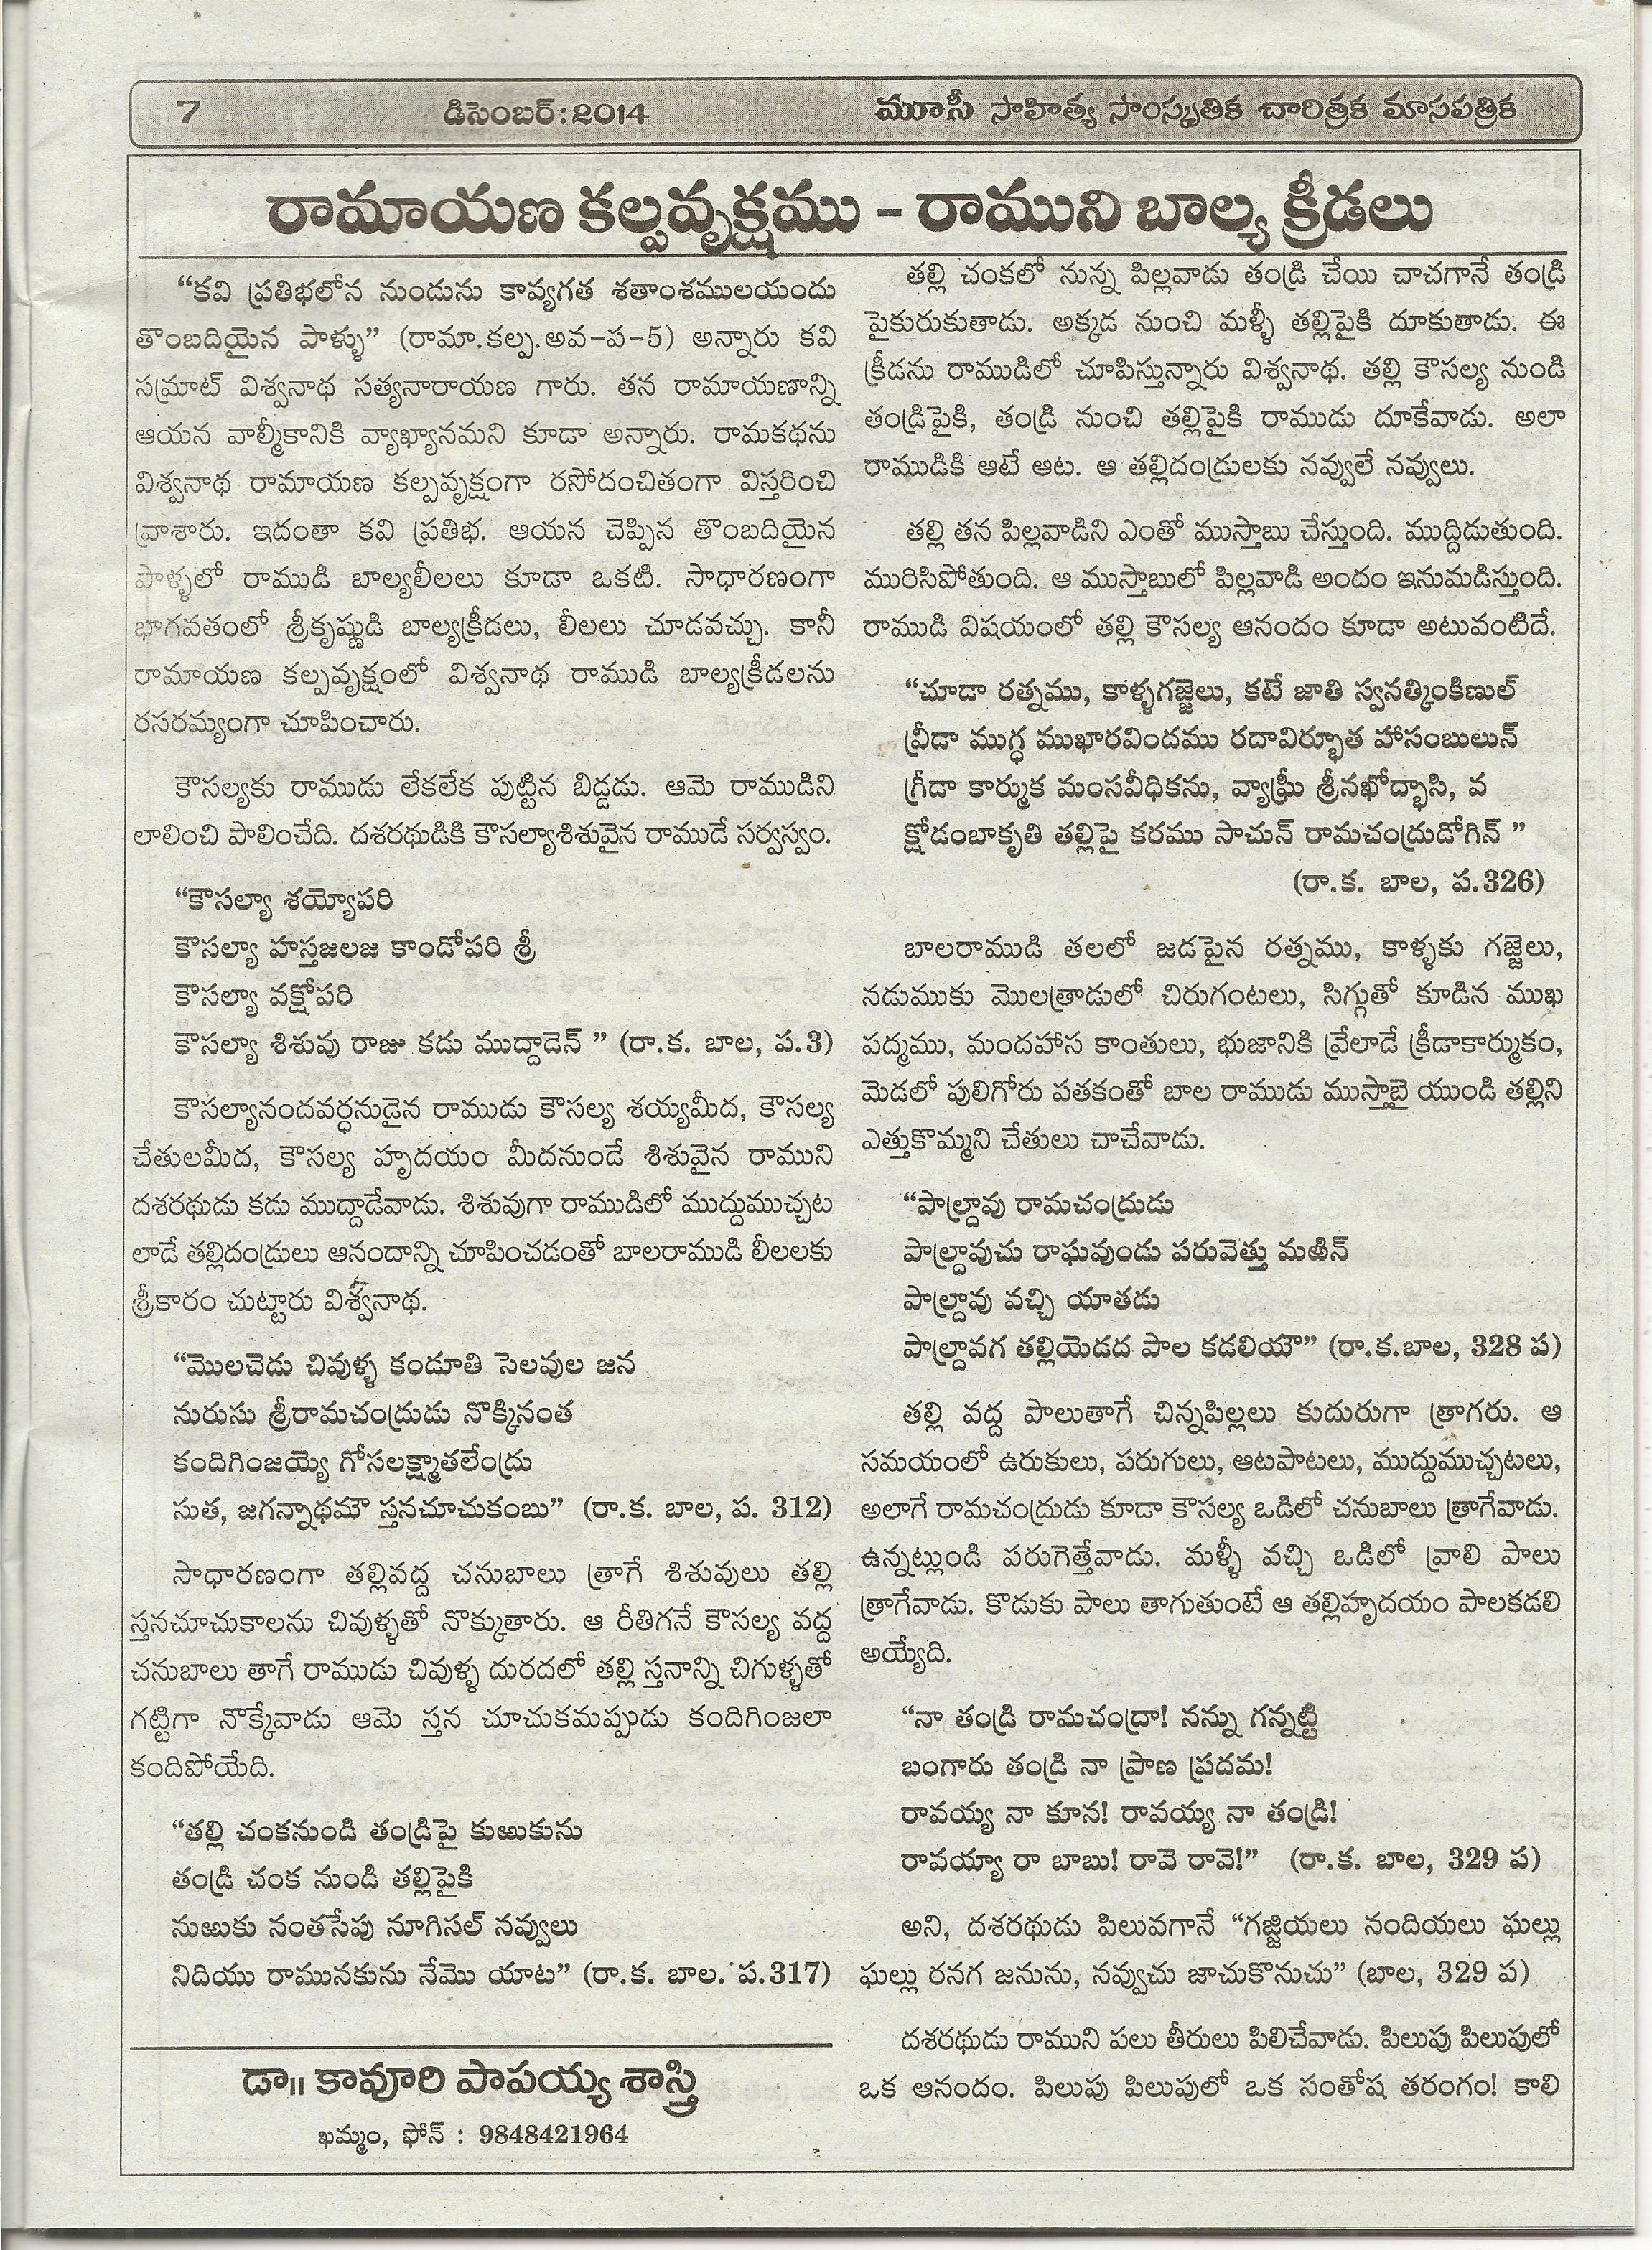 7 డిసెంబర్:2014 మూసీ సాహిత్య సాంస్కృతిక చారిత్రక మాసపత్రిక
రామాయణ కల్పవృక్షము - రాముని బాల్య క్రీడలు
“కవి ప్రతిభలోన నుండును కావ్యగత శతాంశములయందు
తొంబదియైన పాళ్ళు” (రామా.కల్ప.అవ-ప-5) అన్నారు కవి
సమ్రాట్ విశ్వనాథ సత్యనారాయణ గారు. తన రామాయణాన్ని
ఆయన వాల్మీకానికి వ్యాఖ్యానమని కూడా అన్నారు. రామకథను
విశ్వనాథ రామాయణ కల్పవృక్షంగా రసోదంచితంగా విస్తరించి
వ్రాశారు. ఇదంతా కవి ప్రతిభ. ఆయన చెప్పిన తొంబదియైన
పాళ్ళలో రాముడి బాల్యలీలలు కూడా ఒకటి. సాధారణంగా
భాగవతంలో శ్రీకృష్ణుడి బాల్యక్రీడలు, లీలలు చూడవచ్చు. కానీ
రామాయణ కల్పవృక్షంలో విశ్వనాథ రాముడి బాల్యక్రీడలను
రసరమ్యంగా చూపించారు.
కౌసల్యకు రాముడు లేకలేక పుట్టిన బిడ్డడు. ఆమె రాముడిని
లాలించి పాలించేది. దశరథుడికి కౌసల్యాశిశువైన రాముడే సర్వస్వం.
“కౌసల్యా శయ్యోపరి
కౌసల్యా హస్తజలజ కాండోపరి శ్రీ
కౌసల్యా వక్షోపరి
కౌసల్యా శిశువు రాజు కడు ముద్దాడెన్ ” (రా.క. బాల, ప.3)
కౌసల్యానందవర్ధనుడైన రాముడు కౌసల్య శయ్యమీద, కౌసల్య
చేతులమీద, కౌసల్య హృదయం మీదనుండే శిశువైన రాముని
దశరథుడు కడు ముద్దాడేవాడు. శిశువుగా రాముడిలో ముద్దుముచ్చట
లాడే తల్లిదండ్రులు ఆనందాన్ని చూపించడంతో బాలరాముడి లీలలకు
శ్రీకారం చుట్టారు విశ్వనాథ.
“మొలచెడు చివుళ్ళ కండూతి సెలవుల జన
నురుసు శ్రీరామచంద్రుడు నొక్కినంత
కందిగింజయ్యె గోసలక్ష్మాతలేంద్రు
సుత, జగన్నాథమౌ స్తనచూచుకంబు” (రా.క. బాల, ప. 312)
సాధారణంగా తల్లివద్ద చనుబాలు త్రాగే శిశువులు తల్లి
స్తనచూచుకాలను చివుళ్ళతో నొక్కుతారు. ఆ రీతిగనే కౌసల్య వద్ద
చనుబాలు తాగే రాముడు చివుళ్ళ దురదలో తల్లి స్తనాన్ని చిగుళ్ళతో
గట్టిగా నొక్కేవాడు ఆమె స్తన చూచుకమప్పుడు కందిగింజలా
కందిపోయేది.
“తల్లి చంకనుండి తండ్రిపై కుఱుకును
తండ్రి చంక నుండి తల్లిపైకి
నుఱుకు నంతసేపు నూగిసల్ నవ్వులు
నిదియు రామునకును నేమొ యాట” (రా.క. బాల. ప.317)
డా॥ కావూరి పాపయ్య శాస్త్రి
ఖమ్మం, ఫోన్ : 9848421964
తల్లి చంకలో నున్న పిల్లవాడు తండ్రి చేయి చాచగానే తండ్రి
పైకురుకుతాడు. అక్కడ నుంచి మళ్ళీ తల్లిపైకి దూకుతాడు. ఈ
క్రీడను రాముడిలో చూపిస్తున్నారు విశ్వనాథ. తల్లి కౌసల్య నుండి
తండ్రిపైకి, తండ్రి నుంచి తల్లిపైకి రాముడు దూకేవాడు. అలా
రాముడికి ఆటే ఆట. ఆ తల్లిదండ్రులకు నవ్వులే నవ్వులు.
తల్లి తన పిల్లవాడిని ఎంతో ముస్తాబు చేస్తుంది. ముద్దిడుతుంది.
మురిసిపోతుంది. ఆ ముస్తాబులో పిల్లవాడి అందం ఇనుమడిస్తుంది.
రాముడి విషయంలో తల్లి కౌసల్య ఆనందం కూడా అటువంటిదే.
“చూడా రత్నము, కాళ్ళగజ్జెలు, కటే జాతి స్వనత్కింకిణుల్
వ్రీడా ముగ్ధ ముఖారవిందము రదావిర్భూత హాసంబులున్
గ్రీడా కార్ముక మంసవీధికను, వ్యాఘ్రీ శ్రీనఖోద్భాసి, వ
క్షోడంబాకృతి తల్లిపై కరము సాచున్ రామచంద్రుడోగిన్ ”
(రా.క. బాల, ప.326)
బాలరాముడి తలలో జడపైన రత్నము, కాళ్ళకు గజ్జెలు,
నడుముకు మొలత్రాడులో చిరుగంటలు, సిగ్గుతో కూడిన ముఖ
పద్మము, మందహాస కాంతులు, భుజానికి వ్రేలాడే క్రీడాకార్ముకం,
మెడలో పులిగోరు పతకంతో బాల రాముడు ముస్తాబై యుండి తల్లిని
ఎత్తుకొమ్మని చేతులు చాచేవాడు.
“పాల్ద్రావు రామచంద్రుడు
పాల్ద్రావుచు రాఘవుండు పరువెత్తు మఱిన్
పాల్ద్రావు వచ్చి యాతడు
పాల్ద్రావగ తల్లియెడద పాల కడలియౌ” (రా.క.బాల, 328 ప)
తల్లి వద్ద పాలుతాగే చిన్నపిల్లలు కుదురుగా త్రాగరు. ఆ
సమయంలో ఉరుకులు, పరుగులు, ఆటపాటలు, ముద్దుముచ్చటలు,
అలాగే రామచంద్రుడు కూడా కౌసల్య ఒడిలో చనుబాలు త్రాగేవాడు.
ఉన్నట్లుండి పరుగెత్తేవాడు. మళ్ళీ వచ్చి ఒడిలో వ్రాలి పాలు
త్రాగేవాడు. కొడుకు పాలు తాగుతుంటే ఆ తల్లిహృదయం పాలకడలి
అయ్యేది.
“నా తండ్రి రామచంద్రా! నన్ను గన్నట్టి
బంగారు తండ్రి నా ప్రాణ ప్రదమ!
రావయ్య నా కూన! రావయ్య నా తండ్రి!
రావయ్యా రా బాబు! రావె రావె!” (రా.క. బాల, 329 ప)
అని, దశరథుడు పిలువగానే “గజ్జియలు నందియలు ఘల్లు
ఘల్లు రనగ జనును, నవ్వుచు జాచుకొనుచు” (బాల, 329 ప)
దశరథుడు రాముని పలు తీరులు పిలిచేవాడు. పిలుపు పిలుపులో
ఒక ఆనందం. పిలుపు పిలుపులో ఒక సంతోష తరంగం! కాలి